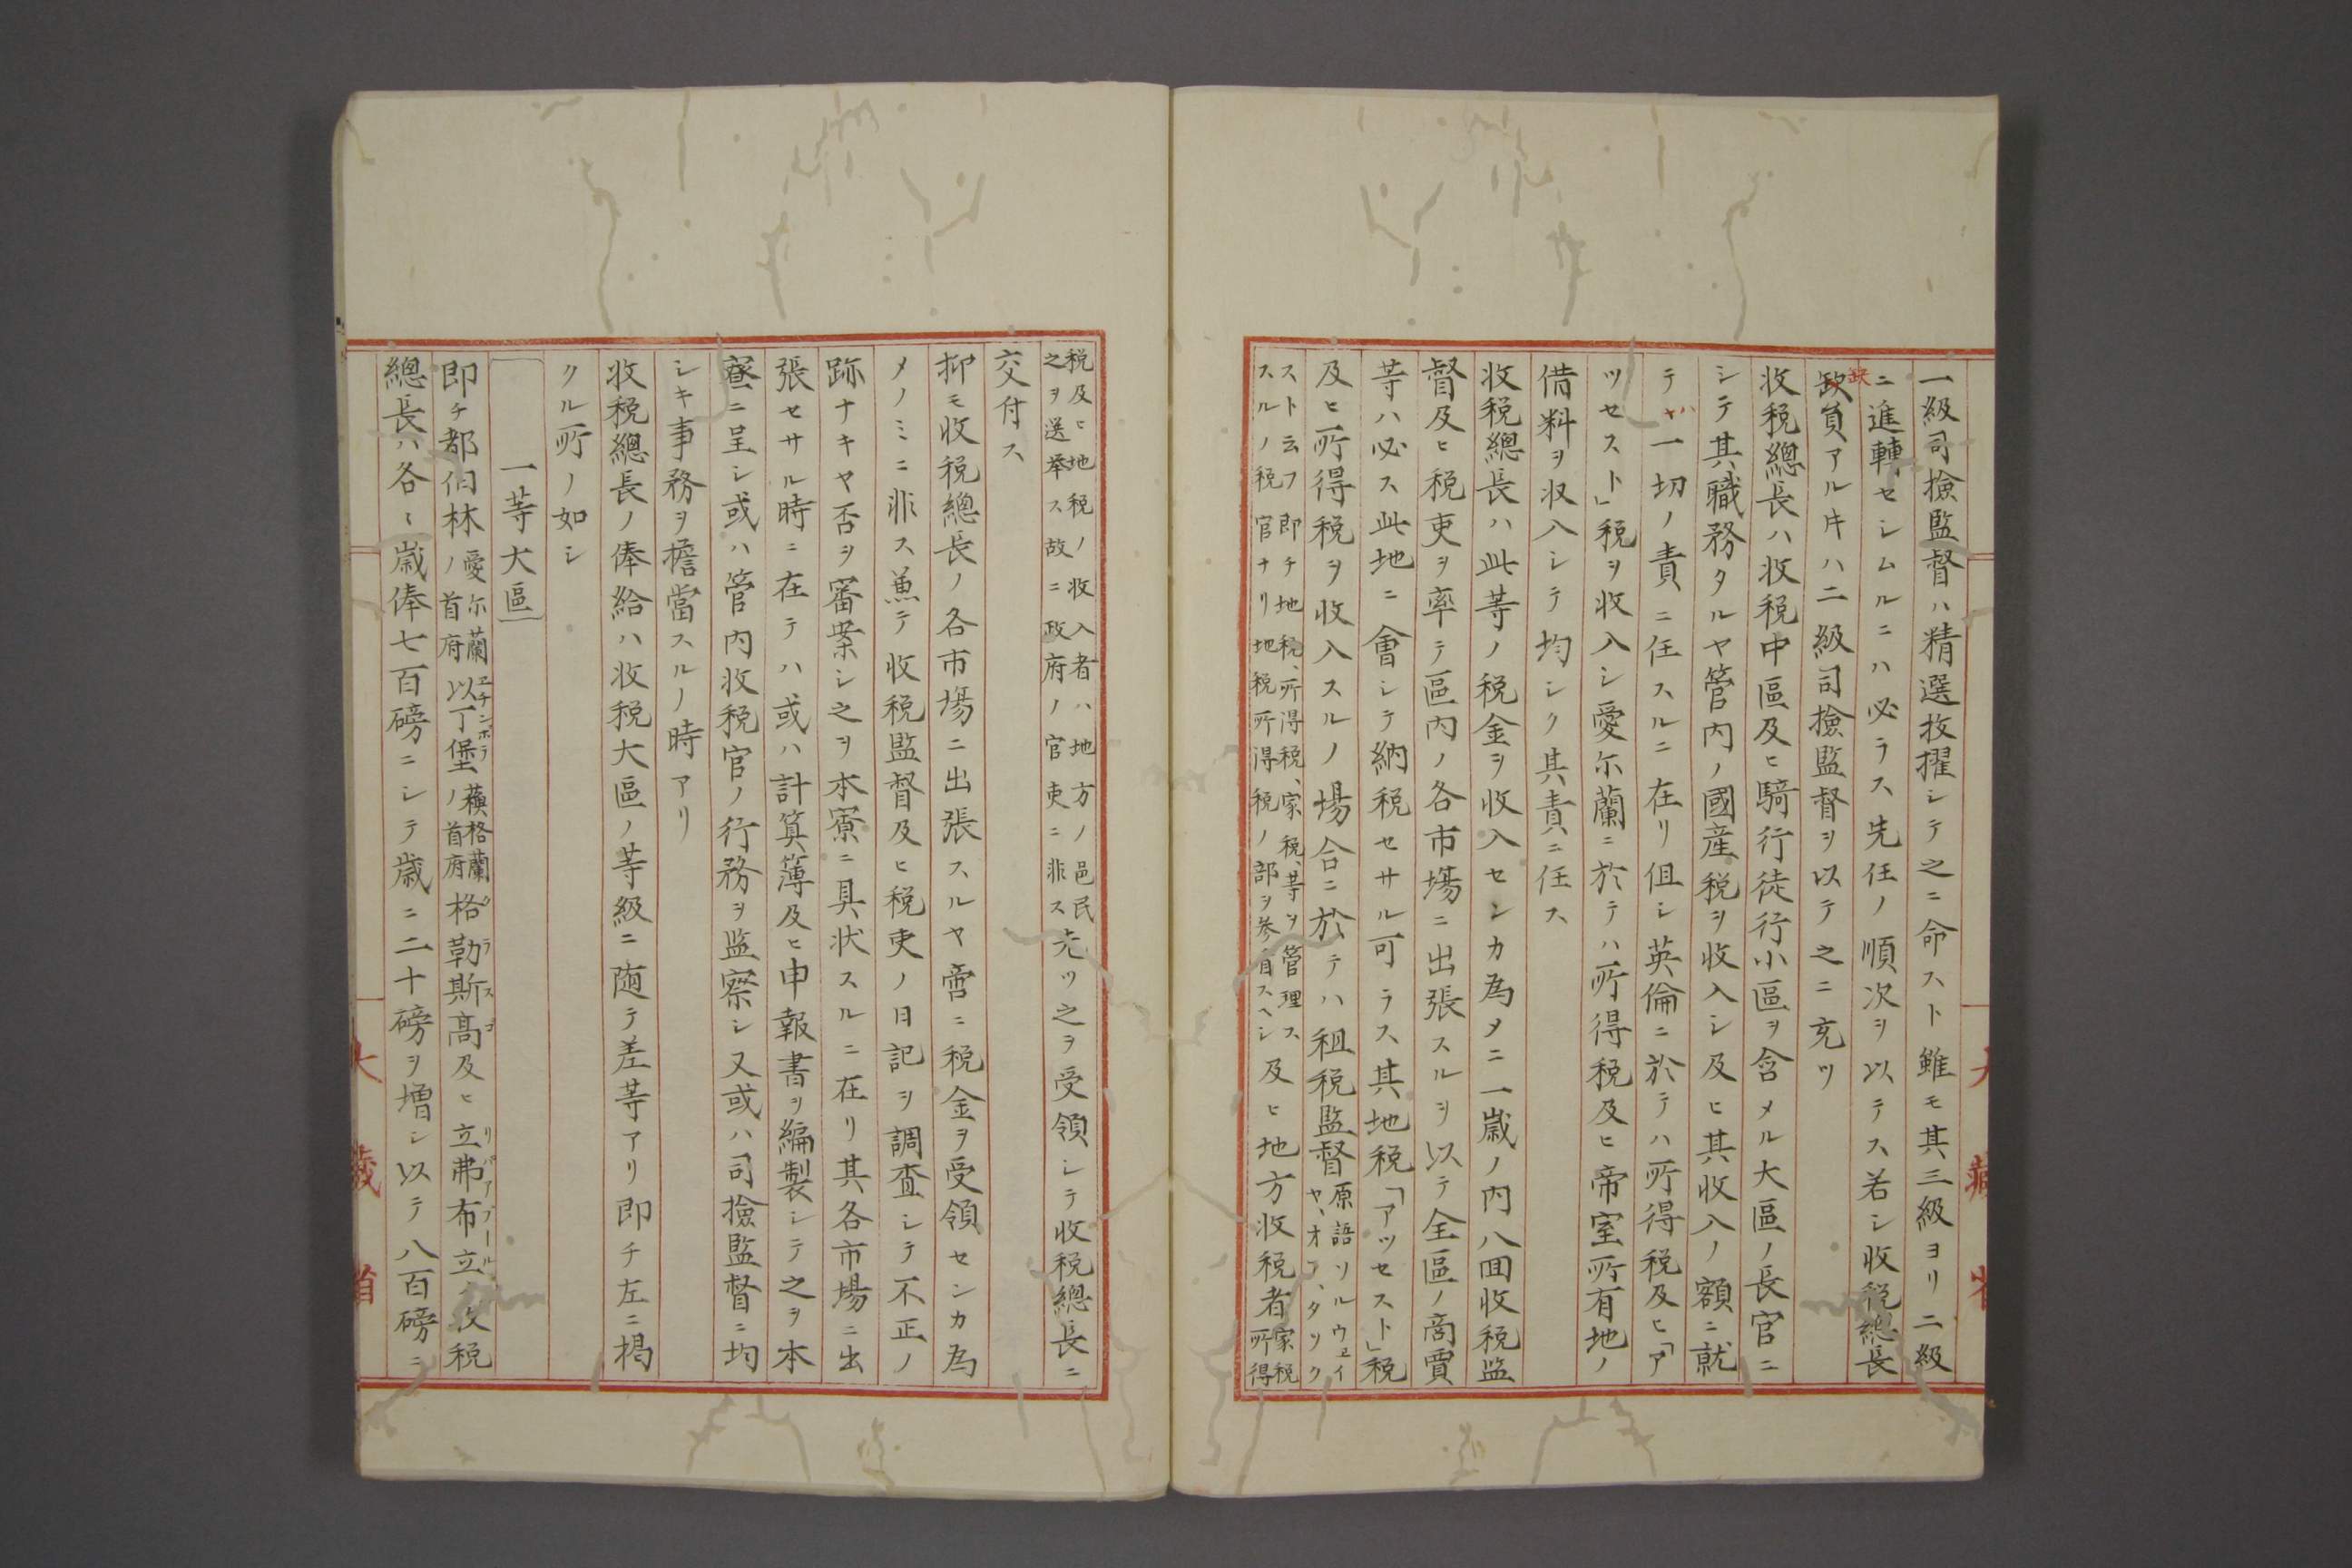 一級司撿監督ハ精選抜擢シテ之ニ命スト雖モ其三級ヨリ二級
ニ進轉セシムルニハ必ラス先任ノ順次ヲ以テス若シ收税總長
缺
缼員アル牛ハ二級司撿監督ヲ以テ之ニ充ツ
收税總長ハ收税中區及ヒ騎行徒行小區ヲ含メル大區ノ長官ニ
シテ其職務タルヤ管内ノ國産税ヲ收入シ及ヒ其收入ノ額ニ就
テハ一切ノ責ニ任スルニ在リ但シ英倫ニ於テハ所得税及ヒ「ア
ツセスト」税ヲ收入シ愛尓蘭ニ於テハ所得税及ヒ帝室所有地ノ
借料ヲ収入シテ均シク其責ニ任ス
收税總長ハ此等ノ税金ヲ收入センカ為メニ一歳ノ内八回收税監
督及ヒ税吏ヲ率テ區内ノ各市塲ニ出張スルヲ以テ全區ノ商賈
等ハ必ス此地ニ會シテ納税セサル可ラス其地税「アツセスト」税
及ヒ所得税ヲ收入スルノ塲合ニ於テハ租税監督原語ソルウェイヤ、オフ、タツク
スト云フ即チ地税、所得税、家税、等ヲ管理ス
スルノ税官ナリ地税所得税ノ部ヲ参自スヘシ及ヒ地方收税者家税所得
税及ヒ地税ノ收入者ハ地方ノ邑民
之ヲ送挙ス故ニ政府ノ官吏ニ非ス先ツ之ヲ受領シテ收税總長ニ
交付ス
抑モ收税總長ノ各市塲ニ出張スルヤ啻ニ税金ヲ受領センカ為
メノミニ非ス兼テ收税監督及ヒ税吏ノ日記ヲ調査シテ不正ノ
跡ナキヤ否ヲ審案シ之ヲ本寮ニ具状スルニ在リ其各市塲ニ出
張セサル時ニ在テハ或ハ計算簿及ヒ申報書ヲ編製シテ之ヲ本
寮ニ呈シ或ハ管内收税官ノ行務ヲ監察シ又或ハ司撿監督ニ均
シキ事務ヲ擔當スルノ時アリ
收税總長ノ俸給ハ收税大區ノ等級ニ随テ差等アリ即チ左ニ掲
クル所ノ如シ
一等大區
即チ都伯林ノ愛尓蘭首府以丁堡エチンボラノ蘓格蘭首府格勒斯髙グラスゴ及ヒ立弗布立リバアプールノ收税
總長ハ各々歳俸七百磅ニシテ歳ニ二十磅ヲ増シ以テ八百磅ニ
大藏省